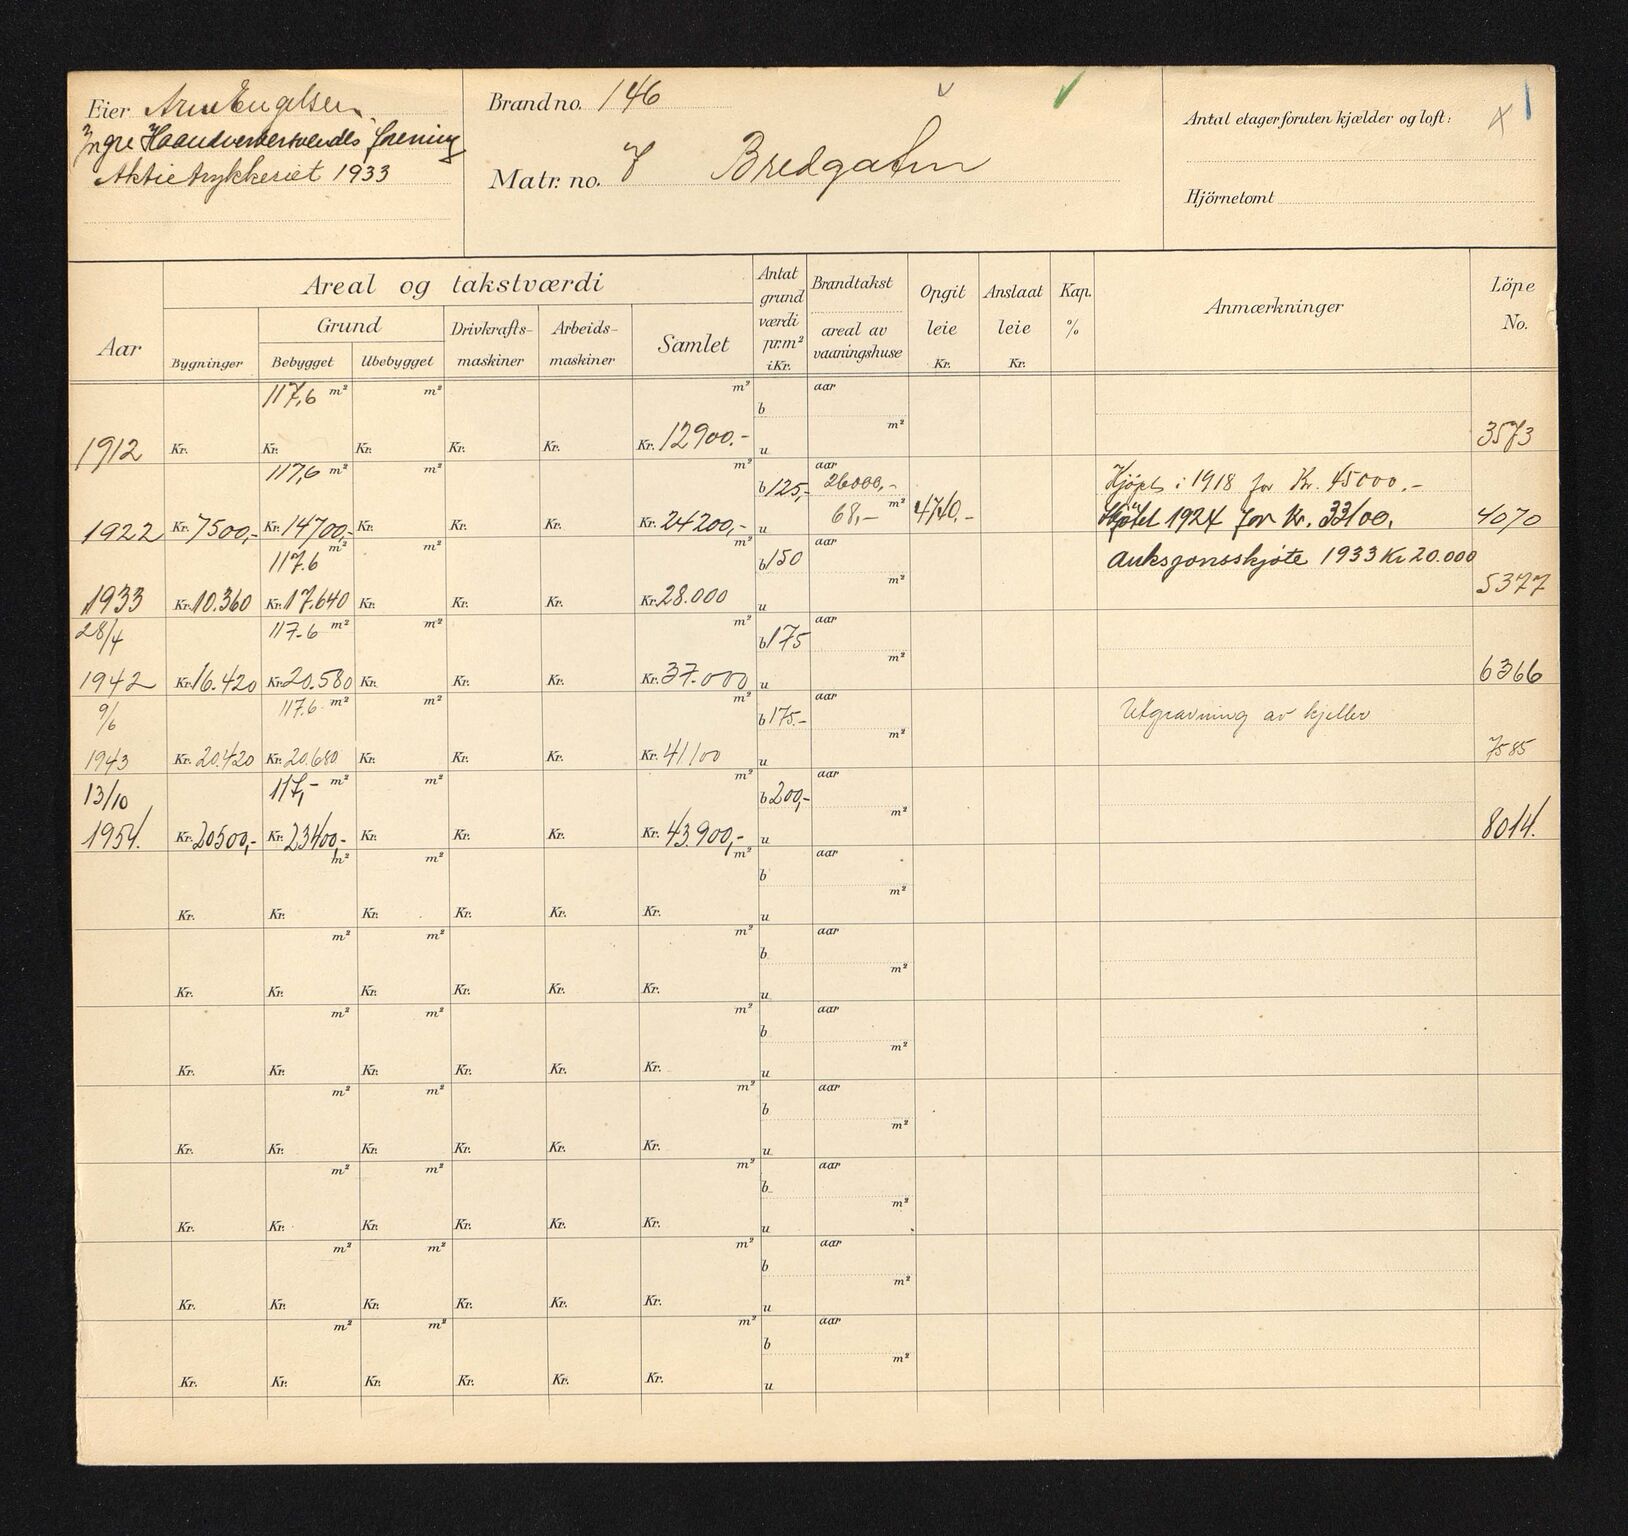 Eier Arne Engelsen
Yngre Haandverkersvendes forening
Aktietrykkeriet 1933
Brand no. 146
Matr. no. 7 Bredgaten
Antal etager foruten kjælder og loft:
Hjörnetomt
Aar
Areal og takstværdi
Bygninger
Grund
Bebygget
Ubebygget
Drivkrafts-
maskiner
Arbeids-
maskiner
Samlet
Antat
grund
værdi
pr. m²
i Kr.
Brandtakst
areal av
vaaningshuse
Opgit
leie
Kr.
Anslaat
leie
Kr.
Kap.
%
Anmærkninger
Löpe
No.
117,6 m² m² m² b aar
m²
1912 Kr. Kr. Kr. Kr. Kr. Kr. 12900.- u 3573
117,6 m² m² m² b 125,- aar 26000,- Kjöpt i 1918 for Kr. 45000.-
68,- m² 4740.-
1922 Kr. 7500,- Kr. 14700,- Kr. Kr. Kr. Kr. 24200,- u Skjötet 1924 for Kr. 33100. 4070
117.6 m² m² m² b 150 aar Auksjonsskjöte 1933 Kr 20.000
m²
1933 Kr. 10.360 Kr. 17.640 Kr. Kr. Kr. Kr. 28.000 u 5377
28/4 117.6 m² m² m² b 175 aar
m²
1942 Kr. 16.420 Kr. 20.580 Kr. Kr. Kr. Kr. 37.000 u 6366
9/6 117.6 m² m² m² b 175.- aar Utgravning av kjeller
m²
1943 Kr. 20.420 Kr. 20.680 Kr. Kr. Kr. Kr. 41100 u 7585
13/10 117,- m² m² m² b 200,- aar
m²
1954. Kr. 20500,- Kr. 23400,- Kr. Kr. Kr. Kr. 43.900,- u 8014.
m² m² m² b aar
m²
Kr. Kr. Kr. Kr. Kr. Kr. u
m² m² m² b aar
m²
Kr. Kr. Kr. Kr. Kr. Kr. u
m² m² m² b aar
m²
Kr. Kr. Kr. Kr. Kr. Kr. u
m² m² m² b aar
m²
Kr. Kr. Kr. Kr. Kr. Kr. u
m² m² m² b aar
m²
Kr. Kr. Kr. Kr. Kr. Kr. u
m² m² m² b aar
m²
Kr. Kr. Kr. Kr. Kr. Kr. u
m² m² m² b aar
m²
Kr. Kr. Kr. Kr. Kr. Kr. u